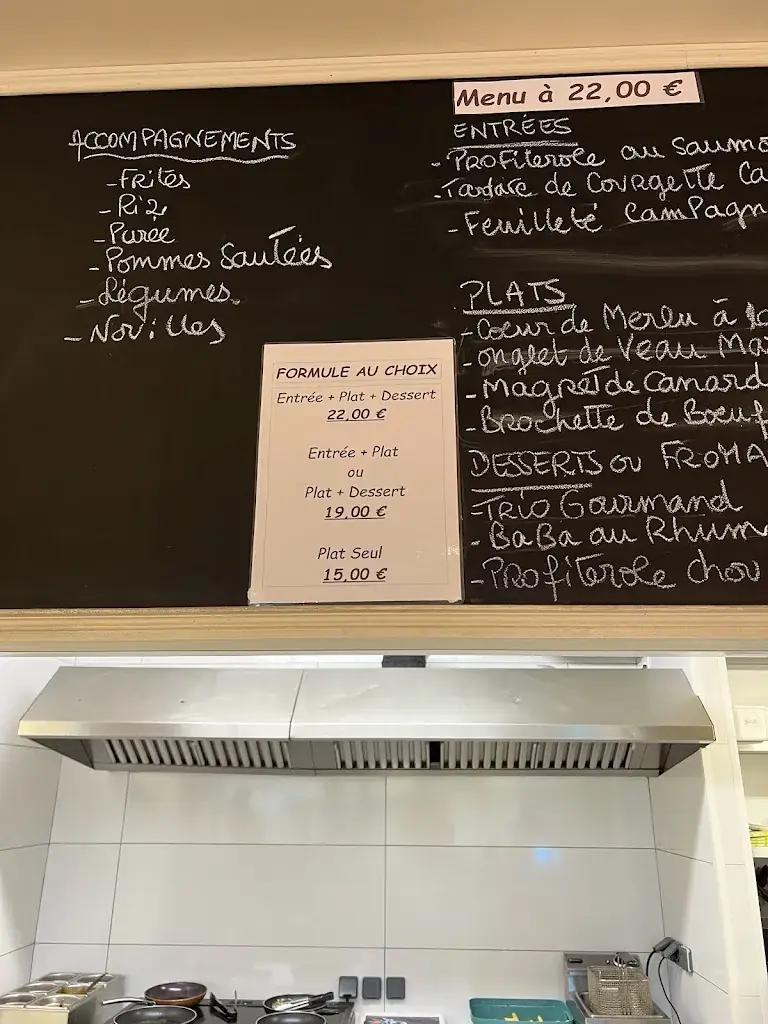 ACCOMPAGNEMENTS
-Frites
-Riz
-Purée
-Pommes Sautées
-Légumes
-Novilles
FORMULE AU CHOIX
Entrée + Plat + Dessert
22,00 €
Entrée + Plat
ou
Plat + Dessert
19,00 €
Plat Seul
15,00 €
Menu à 22,00 €
ENTRÉES
-Profiterole au Saumo
-Tartare de Courgette Ca
-Feuilleté Campagn
PLATS
-Coeur de Merlu à la
-onglet de Veau Ma
-Magret de Canard
-Brochette de Boeuf
DESSERTS ou FROMA
-Trio Gourmand
-BaBa au Rhum
-Profiterole chou